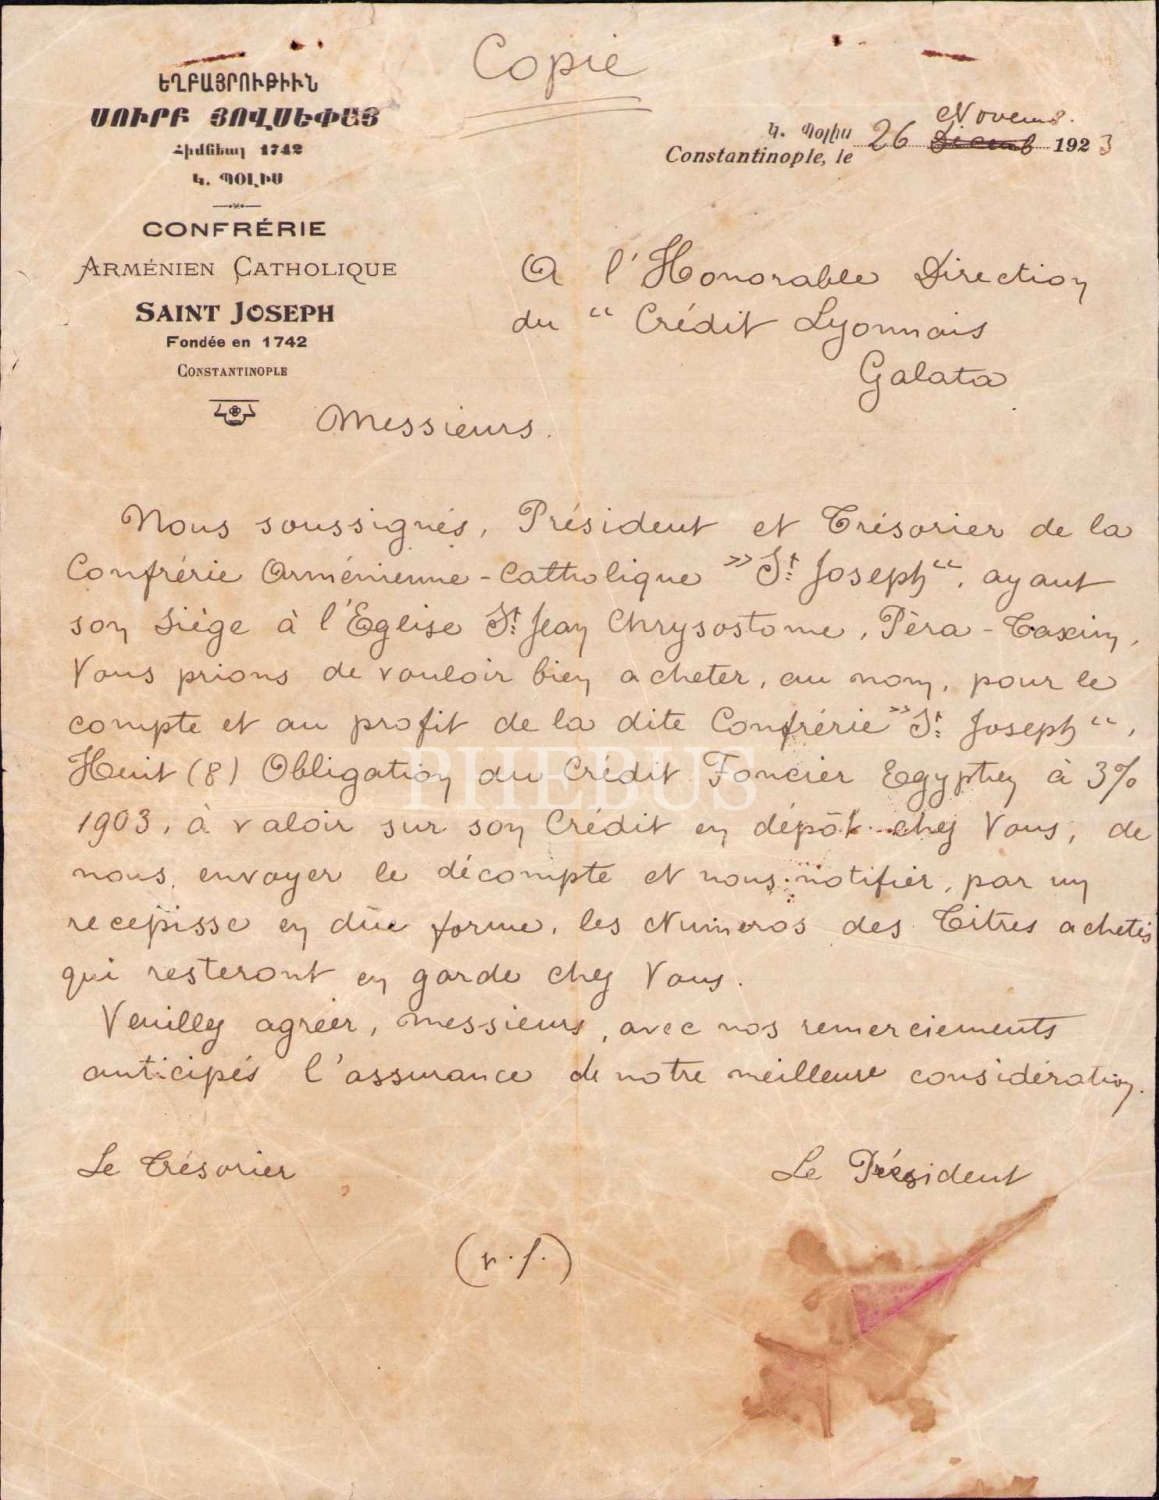 Copie
ԵՂԲԱՅՐՈՒԹԻՒՆ
ՍՈՒՐԲ ՅՈՎՍԵՓԱՅ
Հիմնեալ 1742
Կ. ՊՈԼԻՍ
CONFRÉRIE
ARMÉNIEN CATHOLIQUE
SAINT JOSEPH
Fondée en 1742
CONSTANTINOPLE
Կ. Պոլիս
Constantinople, le 26 Novem. Décemb 1923
A l'Honorable Direction
du “ Crédit Lyonnais
Galata
Messieurs.
Nous soussignés, Président et Trésorier de la
Confrérie Arménienne-Catholique »St Joseph“, ayant
son siège à l'Eglise St Jean Chrysostome, Pèra-Taxim,
Vous prions de vouloir bien acheter, au nom, pour le
compte et au profit de la dite Confrérie »St Joseph“,
Huit (8) Obligation du Crédit Foncier Egyptien à 3%
1903, à valoir sur son Crédit en dépôt chez Vous, de
nous envoyer le décompte et nous notifier, par un
recepisse en dûe forme, les Numeros des Titres achetés
qui resteront en garde chez Vous.
Veuillez agréer, messieurs, avec nos remerciements
anticipés l'assurance de notre meilleure considération.
Le Trésorier
Le Président
PHEBUS